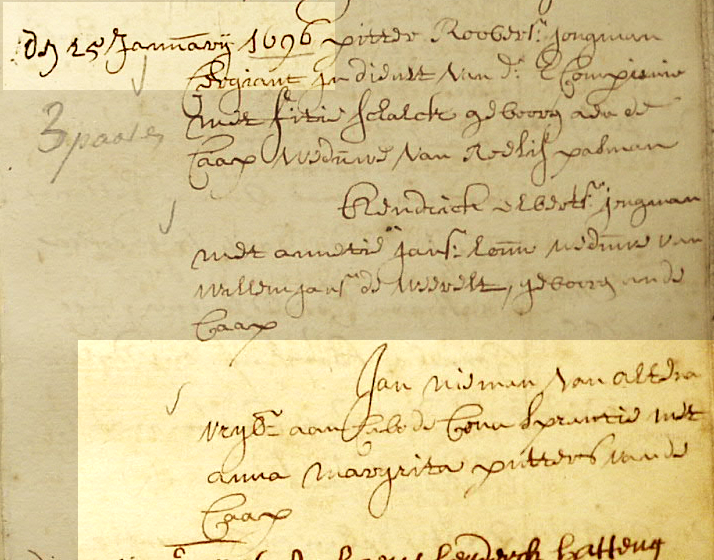 dn 25 Januarij 1696 pitter Roobers: jongman
sergiant in dienst van d: E Compienie
met sitie schalck geboorn aen de
Caap weduwe van Roelif pasman
3 paaren
Hendrick elberts: jongman
met annetie jans: weduwe van
willem jans de weerelt, geboorn ande
Caap
Jan nieman van altena
vryb: aan Cabo de bona sprancie met
anna margrita putters van de
Caap
Hendrick hatting